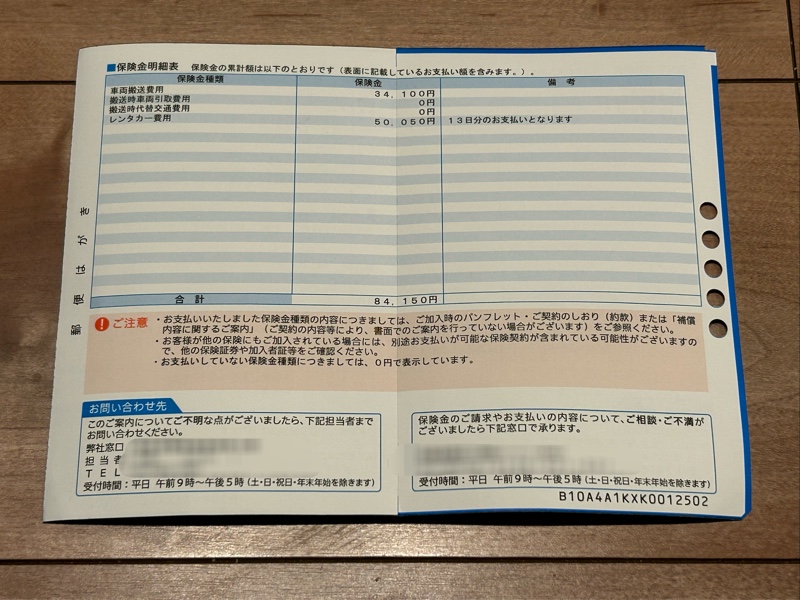 ■保険金明細表 保険金の累計額は以下のとおりです(表面に記載しているお支払い額を含みます。)。
保険金種類 保険金 備考
車両搬送費用 34,100円
搬送時車両引取費用 0円
搬送時代替交通費用 0円
レンタカー費用 50,050円 13日分のお支払いとなります
合計 84,150円
郵便はがき
! ご注意
・お支払いいたしました保険金種類の内容につきましては、ご加入時のパンフレット・ご契約のしおり(約款)または「補償
内容に関するご案内」(ご契約の内容等により、書面でのご案内を行っていない場合がございます)をご参照ください。
・お客様が他の保険にもご加入されている場合には、別途お支払いが可能な保険契約が含まれている可能性がございますの
で、他の保険証券や加入者証等をご確認ください。
・お支払いしていない保険金種類につきましては、0円で表示しています。
お問い合わせ先
このご案内についてご不明な点がございましたら、下記担当者まで
お問い合わせください。
弊社窓口
担当者
TEL
受付時間:平日 午前9時~午後5時(土・日・祝日・年末年始を除きます)
保険金のご請求やお支払いの内容について、ご相談・ご不満が
ございましたら下記窓口で承ります。
受付時間:平日 午前9時~午後5時(土・日・祝日・年末年始を除きます)
B10A4A1KXK0012502